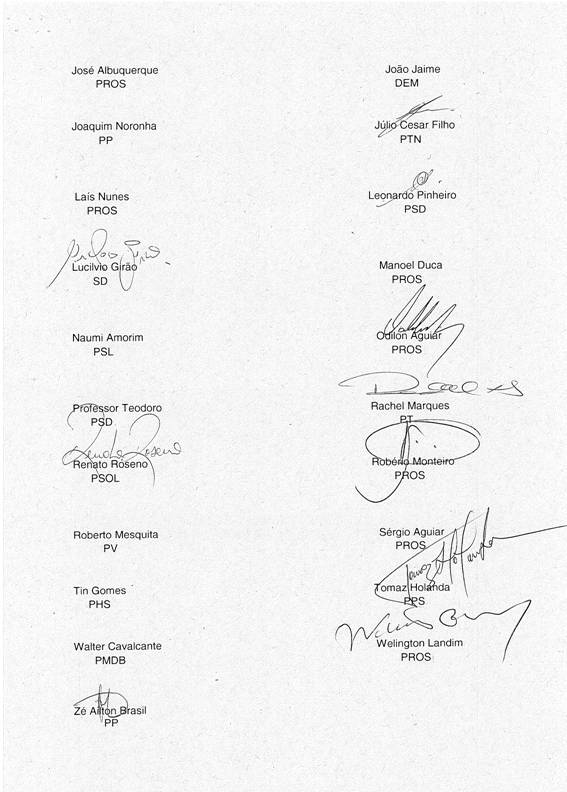 José Albuquerque
PROS
João Jaime
DEM
Joaquim Noronha
PP
Júlio Cesar Filho
PTN
Laís Nunes
PROS
Leonardo Pinheiro
PSD
Lucilvio Girão
SD
Manoel Duca
PROS
Naumi Amorim
PSL
Odilon Aguiar
PROS
Professor Teodoro
PSD
Rachel Marques
PT
Renato Roseno
Renato Roseno
PSOL
Robério Monteiro
PROS
Roberto Mesquita
PV
Sérgio Aguiar
PROS
Tin Gomes
PHS
Tomaz Holanda
Tomaz Holanda
PPS
Walter Cavalcante
PMDB
Welington Landim
PROS
Zé Ailton Brasil
PP